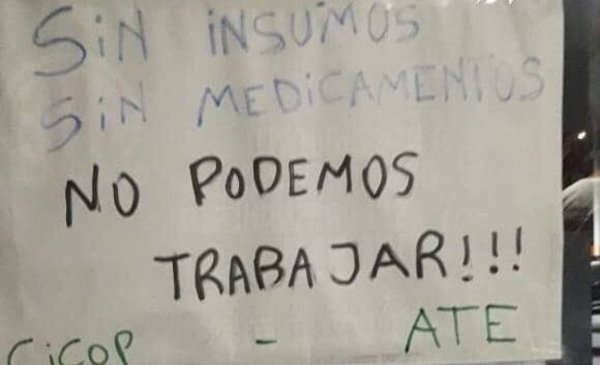 SiN iNSUMOS
SiN MEDiCAMENTOS
NO PODEMOS
TRABAJAR!!!
CiCOP - ATE